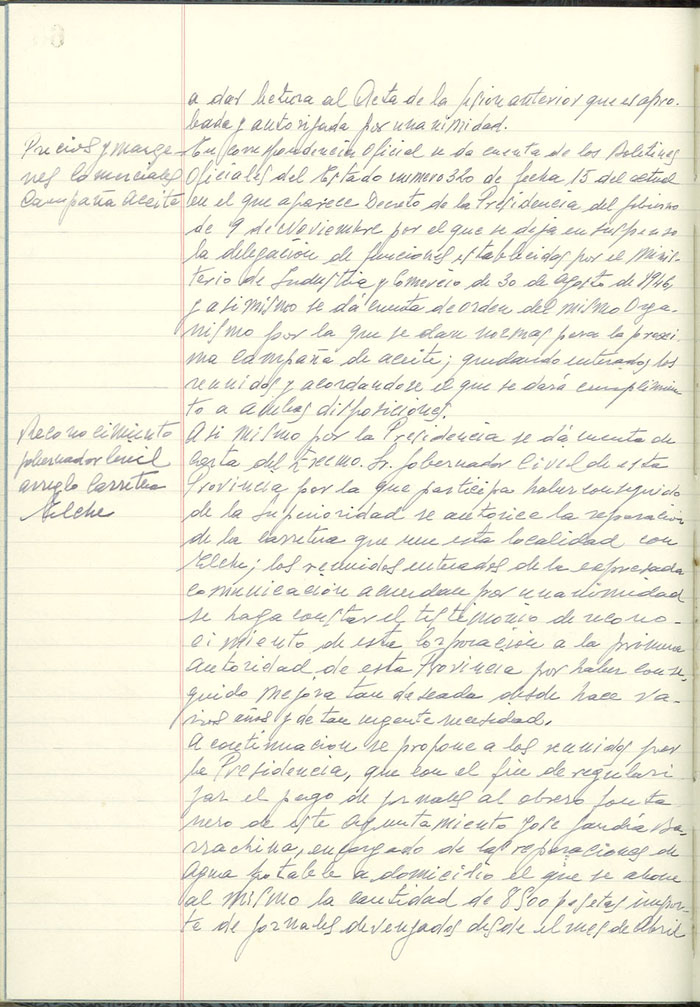 a dar lectura al Acta de la sesion anterior que es apro-
bada y autorizada por unanimidad.
Precios y marge-
nes Comerciales
Campaña Aceite
En correspondencia Oficial se da cuenta de los Boletines
Oficiales del Estado numero 320 de fecha 15 del actual
en el que aparece Decreto de la Presidencia del Gobierno
de 9 de Noviembre por el que se deja en suspenso
la delegación de funciones establecidos por el Minis-
terio de Industria y Comercio de 30 de Agosto de 1946,
y asi mismo se dá cuenta de orden del mismo Orga-
nismo por la que se dan normas para la proxi-
ma Campaña de aceite; quedando enterados los
reunidos y acordandose el que se dará cumplimien
to a ambas disposiciones.
Reconocimiento
Gobernador Civil
arreglo Carretera
Elche
Asi mismo por la Presidencia se dá cuenta de
Carta del Excmo. Sr. Gobernador Civil de esta
Provincia por la que participa haber conseguido
de la Superioridad se autorice la reparacion
de la Carretera que une esta localidad con
Elche; los reunidos enterados de la expresada
comunicación acuerdan por unanimidad
se haga constar el testimonio de recono-
cimiento de esta Corporacion a la primera
Autoridad de esta Provincia por haber conse-
guido mejora tan deseada desde hace va-
rios años y de tan urgente necesidad.
A continuacion se propone a los reunidos por
la Presidencia, que con el fin de regulari
zar el pago de jornales al obrero fonta
nero de este Ayuntamiento Jose Gandía Ba-
rrachina, encargado de las reparaciones de
Agua potable a domicilio el que se abone
al mismo la cantidad de 8500 pesetas impor-
te de jornales devengados desde el mes de Abril